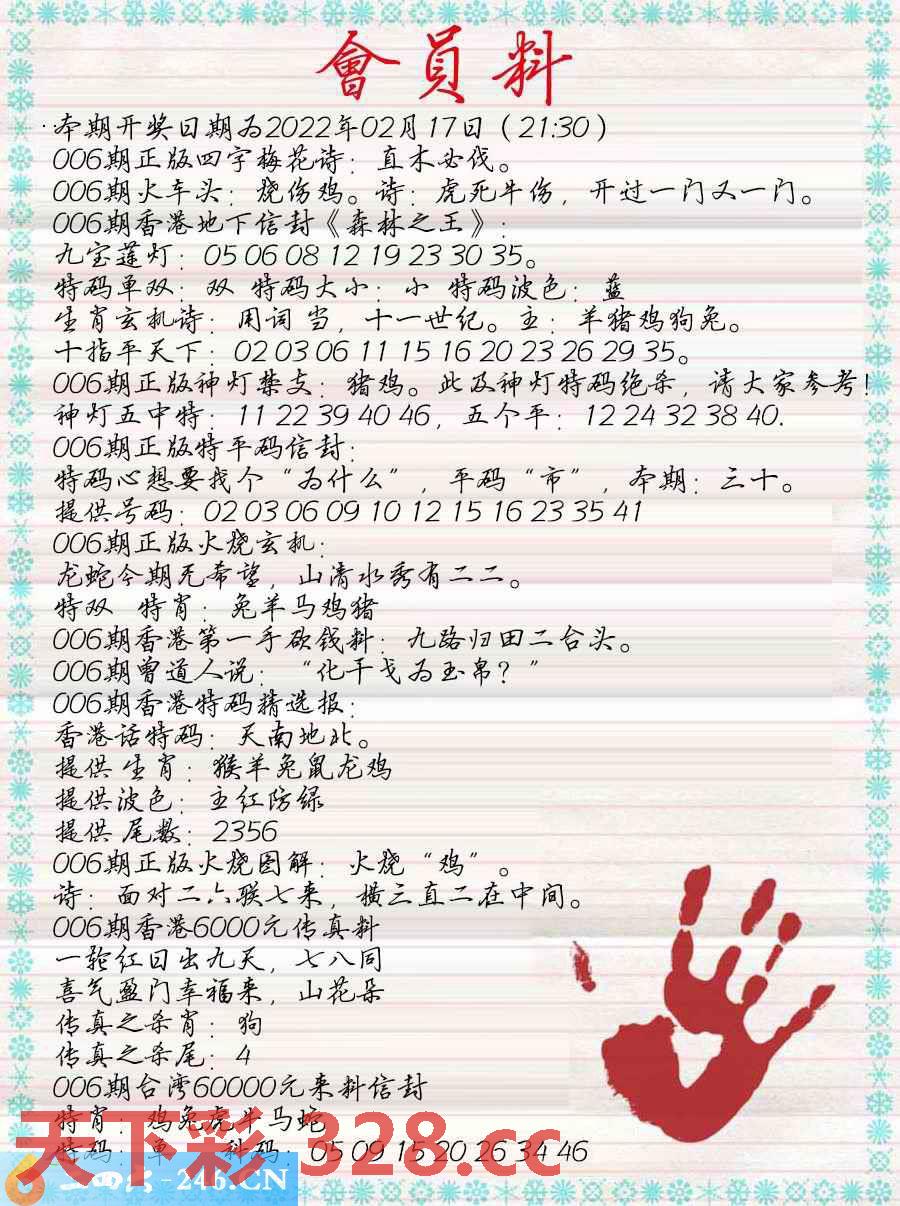 會員料
·本期开奖日期为2022年02月17日（21:30）
006期正版四字梅花诗：直木必伐。
006期火车头：烧伤鸡。诗：虎死牛伤，开过一门又一门。
006期香港地下信封《森林之王》：
九宝莲灯：05 06 08 12 19 23 30 35。
特码单双：双 特码大小：小 特码波色：蓝
生肖玄机诗：用词 当，十一世纪。主：羊猪鸡狗兔。
十指平天下：02 03 06 11 15 16 20 23 26 29 35。
006期正版神灯禁支：猪鸡。此及神灯特码绝杀，请大家参考！
神灯五中特：11 22 39 40 46，五个平：12 24 32 38 40.
006期正版特平码信封：
特码心想要找个“为什么”，平码“市”，本期：三十。
提供号码：02 03 06 09 10 12 15 16 23 35 41
006期正版火烧玄机：
龙蛇今期无希望，山清水秀有二二。
特双 特肖：兔羊马鸡猪
006期香港第一手砍钱料：九路归田二台头。
006期曾道人说：“化干戈为玉帛？”
006期香港特码精选报：
香港话特码：天南地北。
提供 生肖：猴羊兔鼠龙鸡
提供波色：主红防绿
提供 尾数：2356
006期正版火烧图解：火烧“鸡”。
诗：面对二六联七来，横三直二在中间。
006期香港6000元传真料
一轮红日出九天，七八同
喜气盈门幸福来，山花朵
传真之杀肖：狗
传真之杀尾：4
006期台湾60000元来料信封
特肖：鸡兔虎牛马蛇
特码：单 科码：05 09 15 20 26 34 46
天下彩 328.cc
二四六-246.CN